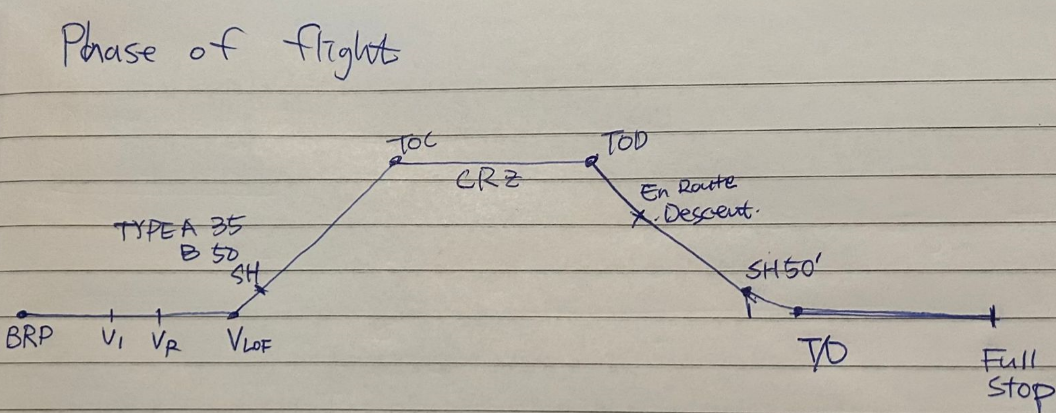 Phase of flight
TOC
TOD
CRZ
En Route
Descent.
TYPE A 35
B 50
SH
SH 50'
BRP
V1
VR
VLOF
T/D
Full
Stop